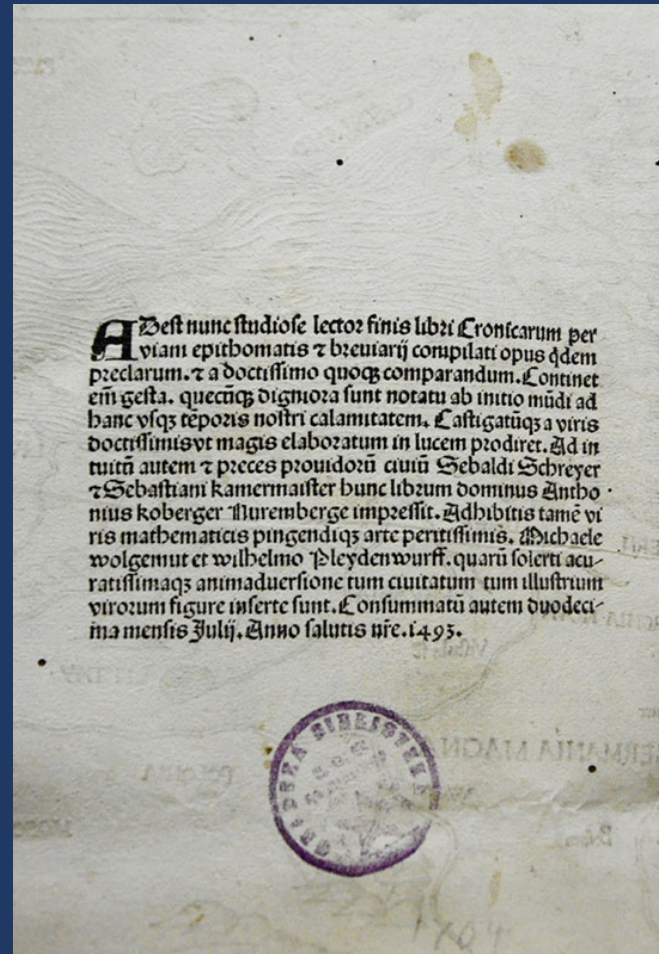 ADest nunc studiose lector finis libri Cronicarum per
viam epithomatis ⁊ breuiarij compilati opus q̃dem
preclarum. ⁊ a doctissimo quoqꝫ comparandum. Continet
em̃ gesta. quecũqꝫ digniora sunt notatu ab initio mũdi ad
hanc vsqꝫ tẽporis nostri calamitatem. Castigatũqꝫ a viris
doctissimis vt magis elaboratum in lucem prodiret. Ad in
tuitũ autem ⁊ preces prouidorũ ciuiũ Sebaldi Schreyer
⁊ Sebastiani kamermaister hunc librum dominus Antho
nius koberger Nuremberge impressit. Adhibitis tamẽ vi
ris mathematicis pingendiqꝫ arte peritissimis. Michaele
wolgemut et wilhelmo Pleydenwurff. quarũ solerti acu-
ratissimaqꝫ animaduersione tum ciuitatum tum illustrium
virorum figure inserte sunt. Consummatũ autem duodeci-
ma mensis Julij. Anno salutis nr̃e. 1493.
GERMANIA MAGNA